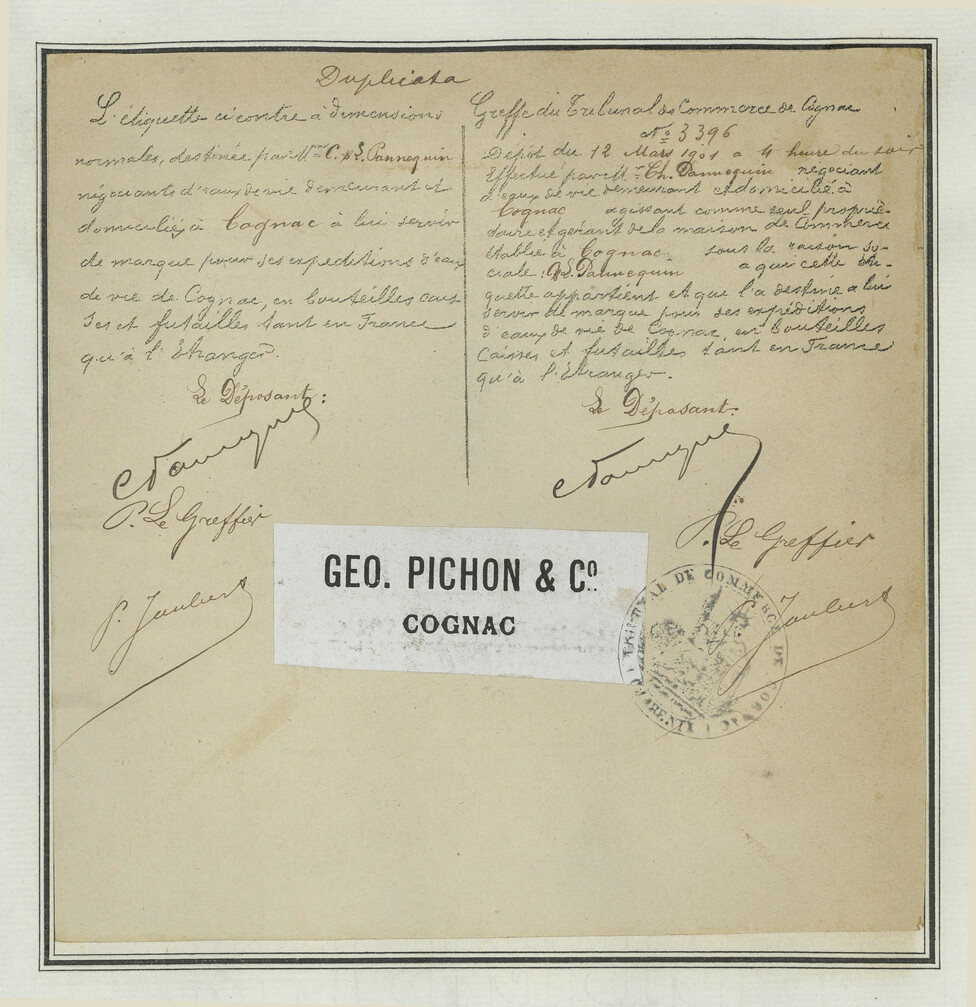 Duplicata
L'étiquette ci contre à dimensions
normales, destinée par M C. & L. Pannequin
négociants d'eaux de vie demeurant et
domicilié à Cognac à lui servir
de marque pour ses expéditions d'eaux
de vie de Cognac, en bouteilles cais
ses et futailles tant en France
qu'à l'Étranger.
Le Déposant:
P. Le Greffier
P. Jaubert
Greffe du Tribunal de Commerce de Cognac
Nº 3396
Dépôt du 12 Mars 1901 a 4 heure du soir
Effectué par Mr Ch. Dannequin négociant
d'eaux de vie demeurant et domicilié à
Cognac agissant comme seul proprié-
taire et gérant de la maison de Commerce
établie à Cognac sous la raison so-
ciale: C & L. Dannequin a qui cette éti-
quette appartient et que l'a destine a lui
servir de marque pour ses expéditions
d'eaux de vie de Cognac, en bouteilles
Caisses et futailles tant en France
qu'à l'Étranger.
Le Déposant:
P. Le Greffier
P. Jaubert
GEO. PICHON & Cº
COGNAC
TRIBUNAL DE COMMERCE DE COGNAC